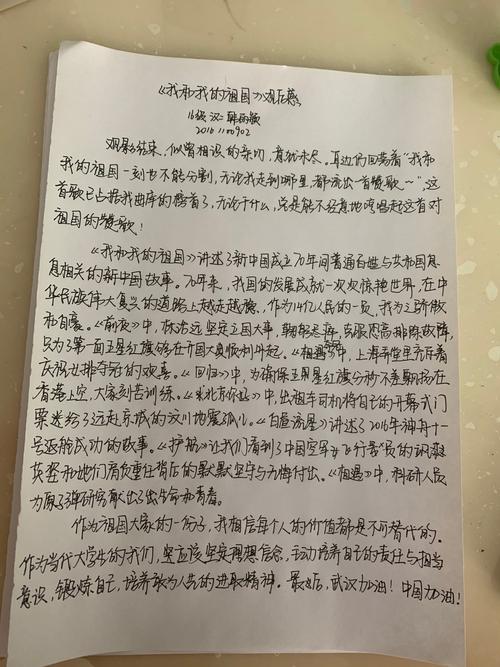 《我和我的祖国》观后感
16级 汉二
2016110902
观影结束,似曾相识的亲切,意犹未尽。耳边仍回荡着“我和
我的祖国一刻也不能分割,无论我走到哪里,都流出一首赞歌~”,这
首歌已占据我曲库的榜首了,无论干什么,总是能不经意地哼唱起这首对
祖国的赞歌!
《我和我的祖国》讲述了新中国成立70年间普通百姓与共和国息
息相关的新中国故事。70年来,我国的发展成就一次次惊艳世界,在中
华民族伟大复兴的道路上越走越稳,作为14亿人民的一员,我为之骄傲
和自豪。《前夜》中,林治远坚定立国大事,克服恐高排除故障,
只为了第一面五星红旗能够在开国大典顺利升起。《夺冠》中,上海弄堂里齐齐看
庆祝女排夺冠的欢喜。《回归》中,为确保五星红旗分秒不差飘扬在
香港上空,大家刻苦训练。《北京你好》中,出租车司机将自己的开幕式门
票送给了远赴京城的汶川地震孤儿。《白昼流星》讲述了2016年神舟十一
号返程成功的故事。《护航》让我们看到了中国空军女飞行员的飒爽
英姿和她们肩负重任背后的默默坚守与无悔付出。《相遇》中,科研人员
为原子弹研究献出了生命和青春。
作为祖国大家的一份子,我相信每个人的价值都是不可替代的。
作为当代大学生的我们,更应该坚定理想信念,主动培养自己的责任与担当
意识,锻炼自己,培养敢为人先的进取精神。最后,武汉加油!中国加油!